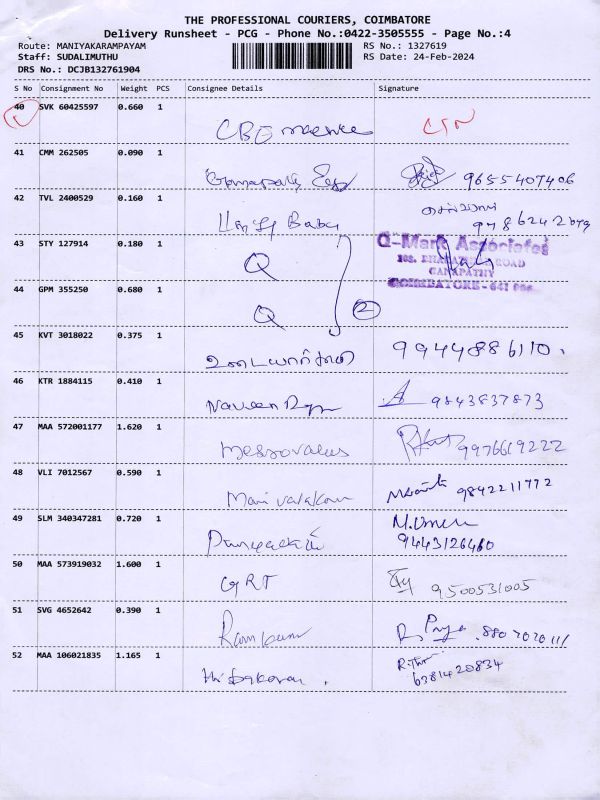 THE PROFESSIONAL COURIERS, COIMBATORE
Delivery Runsheet - PCG - Phone No.:0422-3505555 - Page No.:4
Route: MANIYAKARAMPAYAM RS No.: 1327619
Staff: SUDALIMUTHU RS Date: 24-Feb-2024
DRS No.: DCJB132761904
S No Consignment No Weight PCS Consignee Details Signature
40 SVK 60425597 0.660 1
CBE
41 CMM 262505 0.090 1
9655407406
42 TVL 2400529 0.160 1
Baby
9486242079
43 STY 127914 0.180 1
Q
Q-Mark Associates
ROAD
GANAPATHY
COIMBATORE - 641 006
44 GPM 355250 0.680 1
Q 2
45 KVT 3018022 0.375 1
9944886110.
46 KTR 1884115 0.410 1
Naveen 9843837873
47 MAA 572001177 1.620 1
9976619222
48 VLI 7012567 0.590 1
9842211772
49 SLM 340347281 0.720 1
9443126460
50 MAA 573919032 1.600 1
GRT 9500531005
51 SVG 4652642 0.390 1
R. Priya
52 MAA 106021835 1.165 1
6381420834